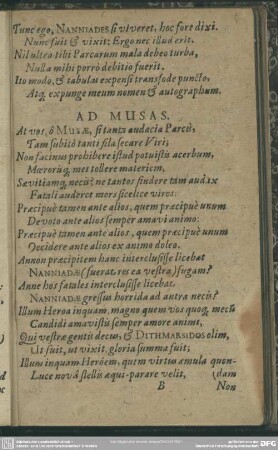 Tunc ego, NANNIADES si viveret, hoc fore dixi.
Nunc fuit & vixit: Ergo nec illud erit.
Nil ultra tibi Parcarum mala debeo turba,
Nulla mihi porrò debitio fuerit.
Ito modo, & tabulas expensi transfode puncto,
Atq. expunge meum nomen & autographum.
AD MUSAS.
At vos, ô MUSÆ, si tanta audacia Parcis,
Tam subitò tanti fila secare Viri;
Non facinus prohibere istud potuistis acerbum,
Mœrorisq, met tollere materiem,
Sævitiamq, necis? ne tantos findere tam audax
Fatali auderet mors sicelice viros:
Præcipuè tamen ante alios, quem præcipuè unum
Devoto ante alios semper amavi animo:
Præcipuè tamen ante alios, quem præcipuè unum
Decidere ante alios ex animo doleo.
Annon præcipitem hanc interclusisse licebat
NANNIADÆ (fuerat res ea vestra) fugam?
Anne hos fatales interclusisse licebat
NANNIADÆ gressus horrida ad antra necis?
Illum Heroa inquam, magno quem vos quoq, mecū
Candidi amavistis semper amore animi,
Qui vestræ gentis decus, & DITHMARSIDOS olim,
Ut fuit, ut vixit, gloria summa fuit;
Illum inquam Heröem, quem virtus æmula quon-
Luce novâ stellis æqui-parare velit, (dam
B Non